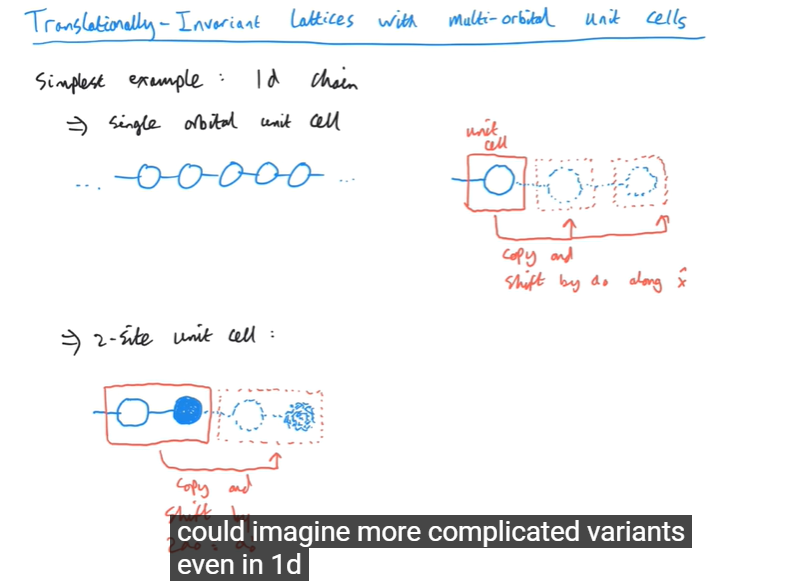 Translationally-Invariant Lattices with multi-orbital unit cells
Simplest example : 1d chain
⇒ single orbital unit cell
... ...
unit
cell
copy and
shift by a₀ along x̂
⇒ 2-site unit cell :
copy and
shift by
could imagine more complicated variants
even in 1d